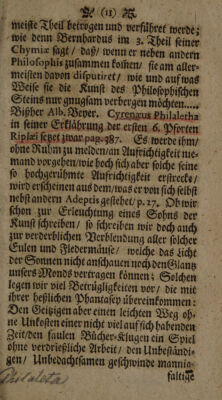 (11)
meiste Theil betrogen und verführet werde;
wie denn Bernhardus im 3. Theil seiner
Chymiæ sagt / daß / wenn er neben andern
Philosophis zusammen kom̃en / sie am aller-
meisten davon disputiret / wie und auf was
Weise sie die Kunst des Philosophischen
Steins nur gnugsam verbergen möchten....
Bißher Alb. Beyer. Cyrenæus Philaletha
in seiner Erklährung der ersten 6. Pforten
Riplæi setzet zwar pag. 387. Es werde ihm /
ohne Ruhm zu melden / an Aufrichtigkeit nie-
mand vorgehen / wie hoch sich aber solche seine
so hochgerühmte Aufrichtigkeit erstrecke /
wird erscheinen aus dem / was er von sich selbst
nebst andern Adeptis gestehet / p. 27. Ob wir
schon zur Erleuchtung eines Sohns der
Kunst schreiben / so schreiben wir doch auch
zur verderblichen Verblendung aller solcher
Eulen und Fledermäuse / welche das Licht
der Sonnen nicht anschauen noch den Glantz
unsers Monds vertragen können: Solchen
legen wir viel Betrüglichkeiten vor / die mit
ihrer heßlichen Phantasey übereinkommen:
Den Geitzigen aber einen leichten Weg oh-
ne Unkosten einer nicht viel auf sich habenden
Zeit / den faulen Bücher-Klugen ein Spiel
ohne verdrießliche Arbeit / den Unbeständi-
gen / Unbedachtsamen geschwinde mannig-
faltige
Philaleta